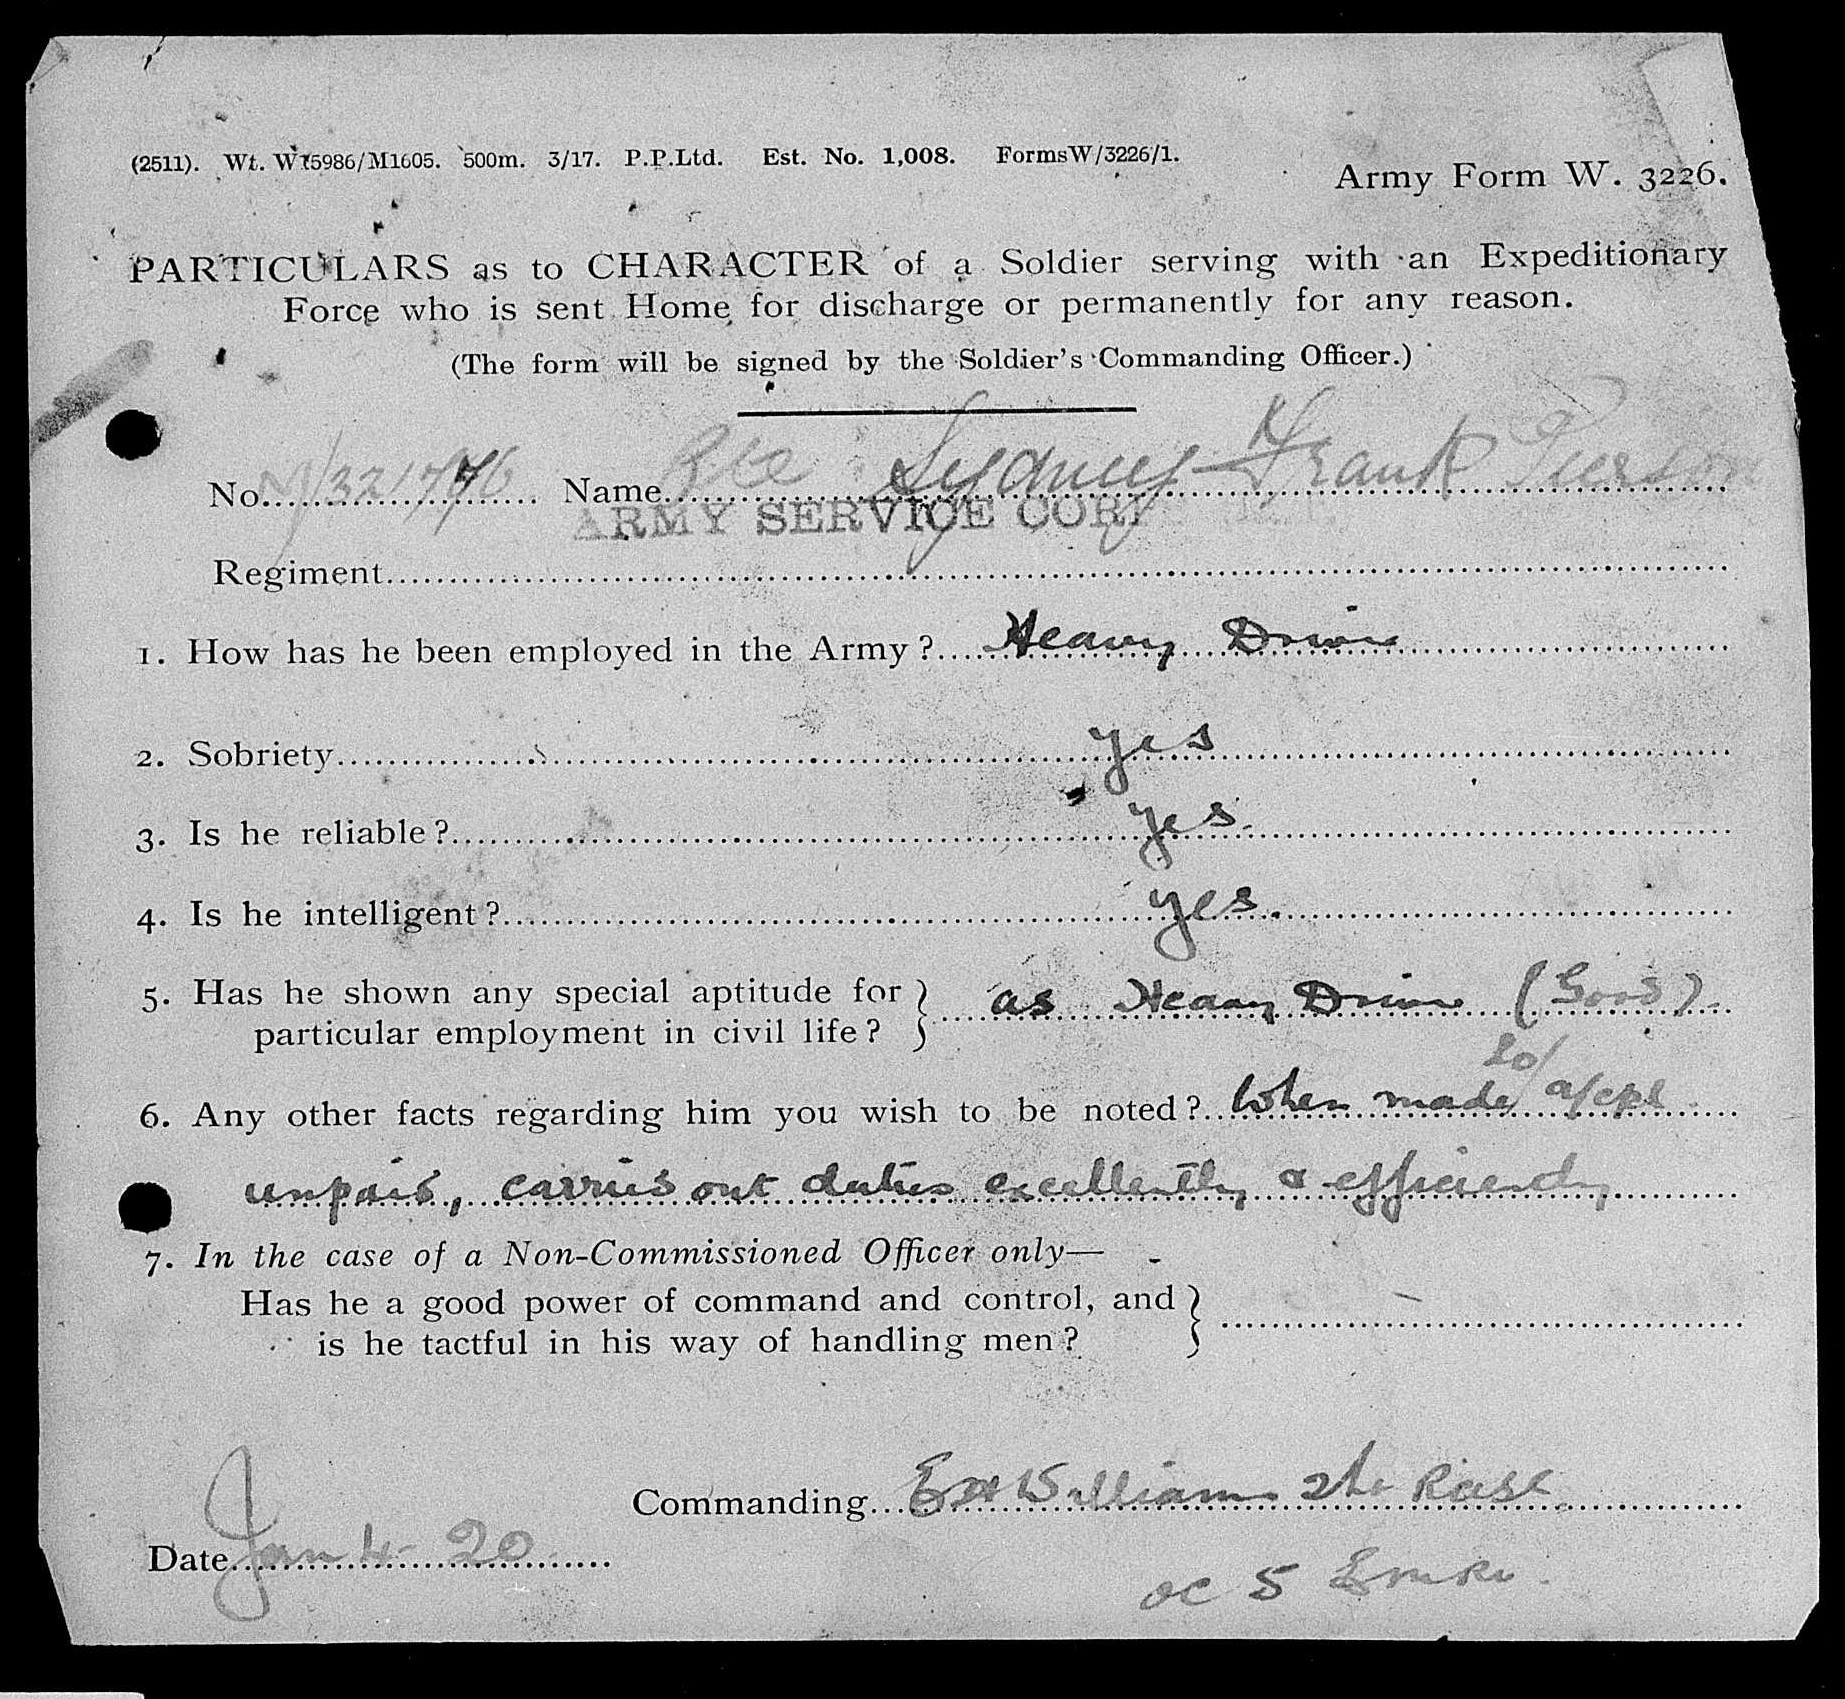 (2511). Wt. W15986/M1605. 500m. 3/17. P.P.Ltd. Est. No. 1,008. FormsW/3226/1.
Army Form W. 3226.
PARTICULARS as to CHARACTER of a Soldier serving with an Expeditionary
Force who is sent Home for discharge or permanently for any reason.
(The form will be signed by the Soldier's Commanding Officer.)
No. Name Pte Sydney Frank
ARMY SERVICE CORP
Regiment
1. How has he been employed in the Army? Heavy Driver
2. Sobriety yes
3. Is he reliable? yes.
4. Is he intelligent? yes.
5. Has he shown any special aptitude for
particular employment in civil life? as Heavy Driver (Good).
6. Any other facts regarding him you wish to be noted? When made a/cpl
unpaid, carries out duties excellently & efficiently
7. In the case of a Non-Commissioned Officer only—
Has he a good power of command and control, and
is he tactful in his way of handling men?
Commanding Williams
Date Jan 4 - 20
OC 5